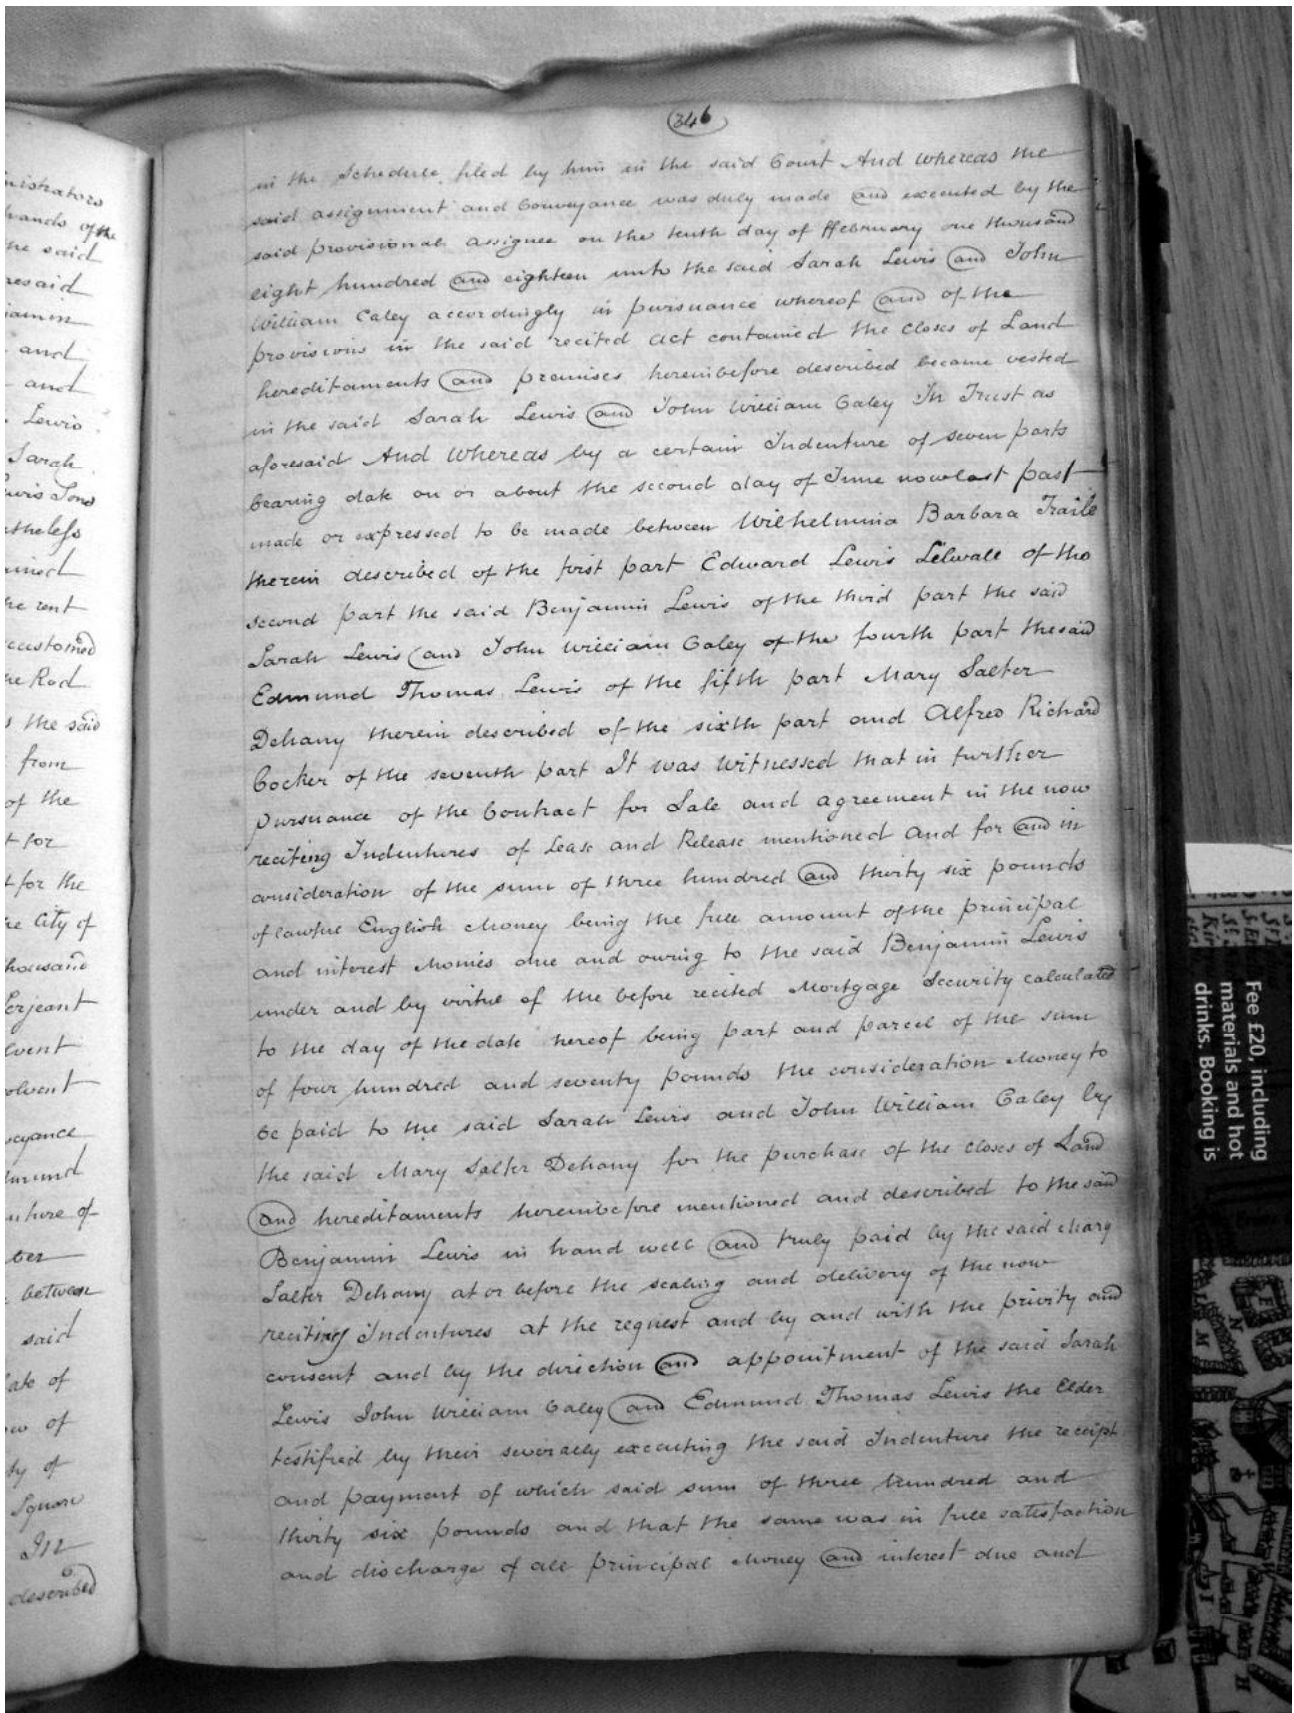 nistrators
hands of the
he said
resaid
jamin
and
and
Lewis
Sarah
ewis Sons
theless
ained
he rent
ccustomed
he Rod
s the said
from
of the
t for
t for the
he City of
housand
Serjeant
lvent
olvent
veyance
dmund
nture of
ber
between
said
ate of
ew of
ty of
Square
In
described
346
in the Schedule filed by him in the said Court And Whereas the
said assignment and Conveyance was duly made and executed by the
said provisional assignee on the tenth day of ffebruary one thousand
eight hundred and eighteen unto the said Sarah Lewis and John
William Caley accordingly in pursuance whereof and of the
provisions in the said recited act contained the Closes of Land
hereditaments and premises hereinbefore described became vested
in the said Sarah Lewis and John William Caley In Trust as
aforesaid And Whereas by a certain Indenture of seven parts
bearing date on or about the second day of June now last past
made or expressed to be made between Wilhelmina Barbara Traile
therein described of the first part Edward Lewis Lelwall of the
second part the said Benjamin Lewis of the third part the said
Sarah Lewis and John William Caley of the fourth part the said
Edmund Thomas Lewis of the fifth part Mary Salter
Dehany therein described of the sixth part and Alfred Richard
Cocker of the seventh part It was Witnessed that in further
pursuance of the Contract for Sale and agreement in the now
reciting Indentures of Lease and Release mentioned and for and in
consideration of the sum of three hundred and thirty six pounds
of lawful English Money being the full amount of the principal
and interest Monies due and owing to the said Benjamin Lewis
under and by virtue of the before recited Mortgage Security calculated
to the day of the date hereof being part and parcel of the sum
of four hundred and seventy pounds the consideration Money to
be paid to the said Sarah Lewis and John William Caley by
the said Mary Salter Dehany for the purchase of the Closes of Land
and hereditaments hereinbefore mentioned and described to the said
Benjamin Lewis in hand well and truly paid by the said Mary
Salter Dehany at or before the sealing and delivery of the now
reciting Indentures at the request and by and with the privity and
consent and by the direction and appointment of the said Sarah
Lewis John William Caley and Edmund Thomas Lewis the Elder
testified by their severally executing the said Indenture the receipt
and payment of which said sum of three hundred and
thirty six pounds and that the same was in full satisfaction
and discharge of all principal Money and interest due and
Fee £20, including
materials and hot
drinks. Booking is